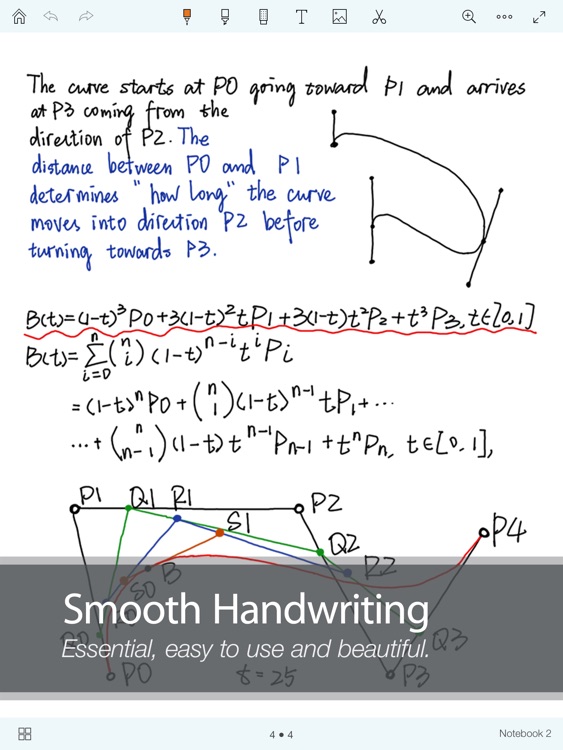 The curve starts at P0 going toward P1 and arrives
at P3 coming from the
direction of P2. The
distance between P0 and P1
determines "how long" the curve
moves into direction P2 before
turning towards P3.
B(t)=(1-t)³P0+3(1-t)²tP1+3(1-t)t²P2+t³P3, t∈[0,1]
B(t)=∑ⁿᵢ₌₀(ⁿᵢ)(1-t)ⁿ⁻ⁱtⁱPi
=(1-t)ⁿP0+(ⁿ₁)(1-t)ⁿ⁻¹tP₁+···
···+(ⁿₙ₋₁)(1-t)tⁿ⁻¹Pₙ₋₁+tⁿPₙ, t∈[0,1],
P1 Q1 R1 P2
S1
Q2 P4
B R2
S0
Smooth Handwriting
Essential, easy to use and beautiful.
Q3
P0 t=25 P3
4 ● 4
Notebook 2